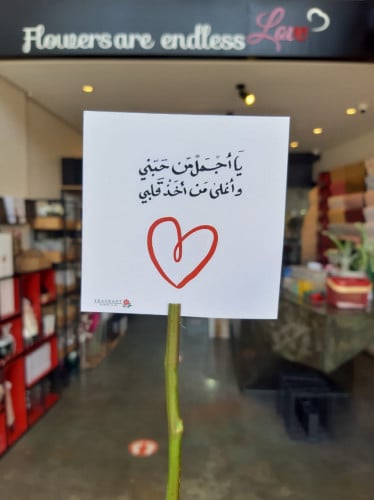 Flowers are endless Love
يَا أجْمَلْ مَن حَبّني
وأغلى مَن أخَذْ قَلبي
FRAGRANT